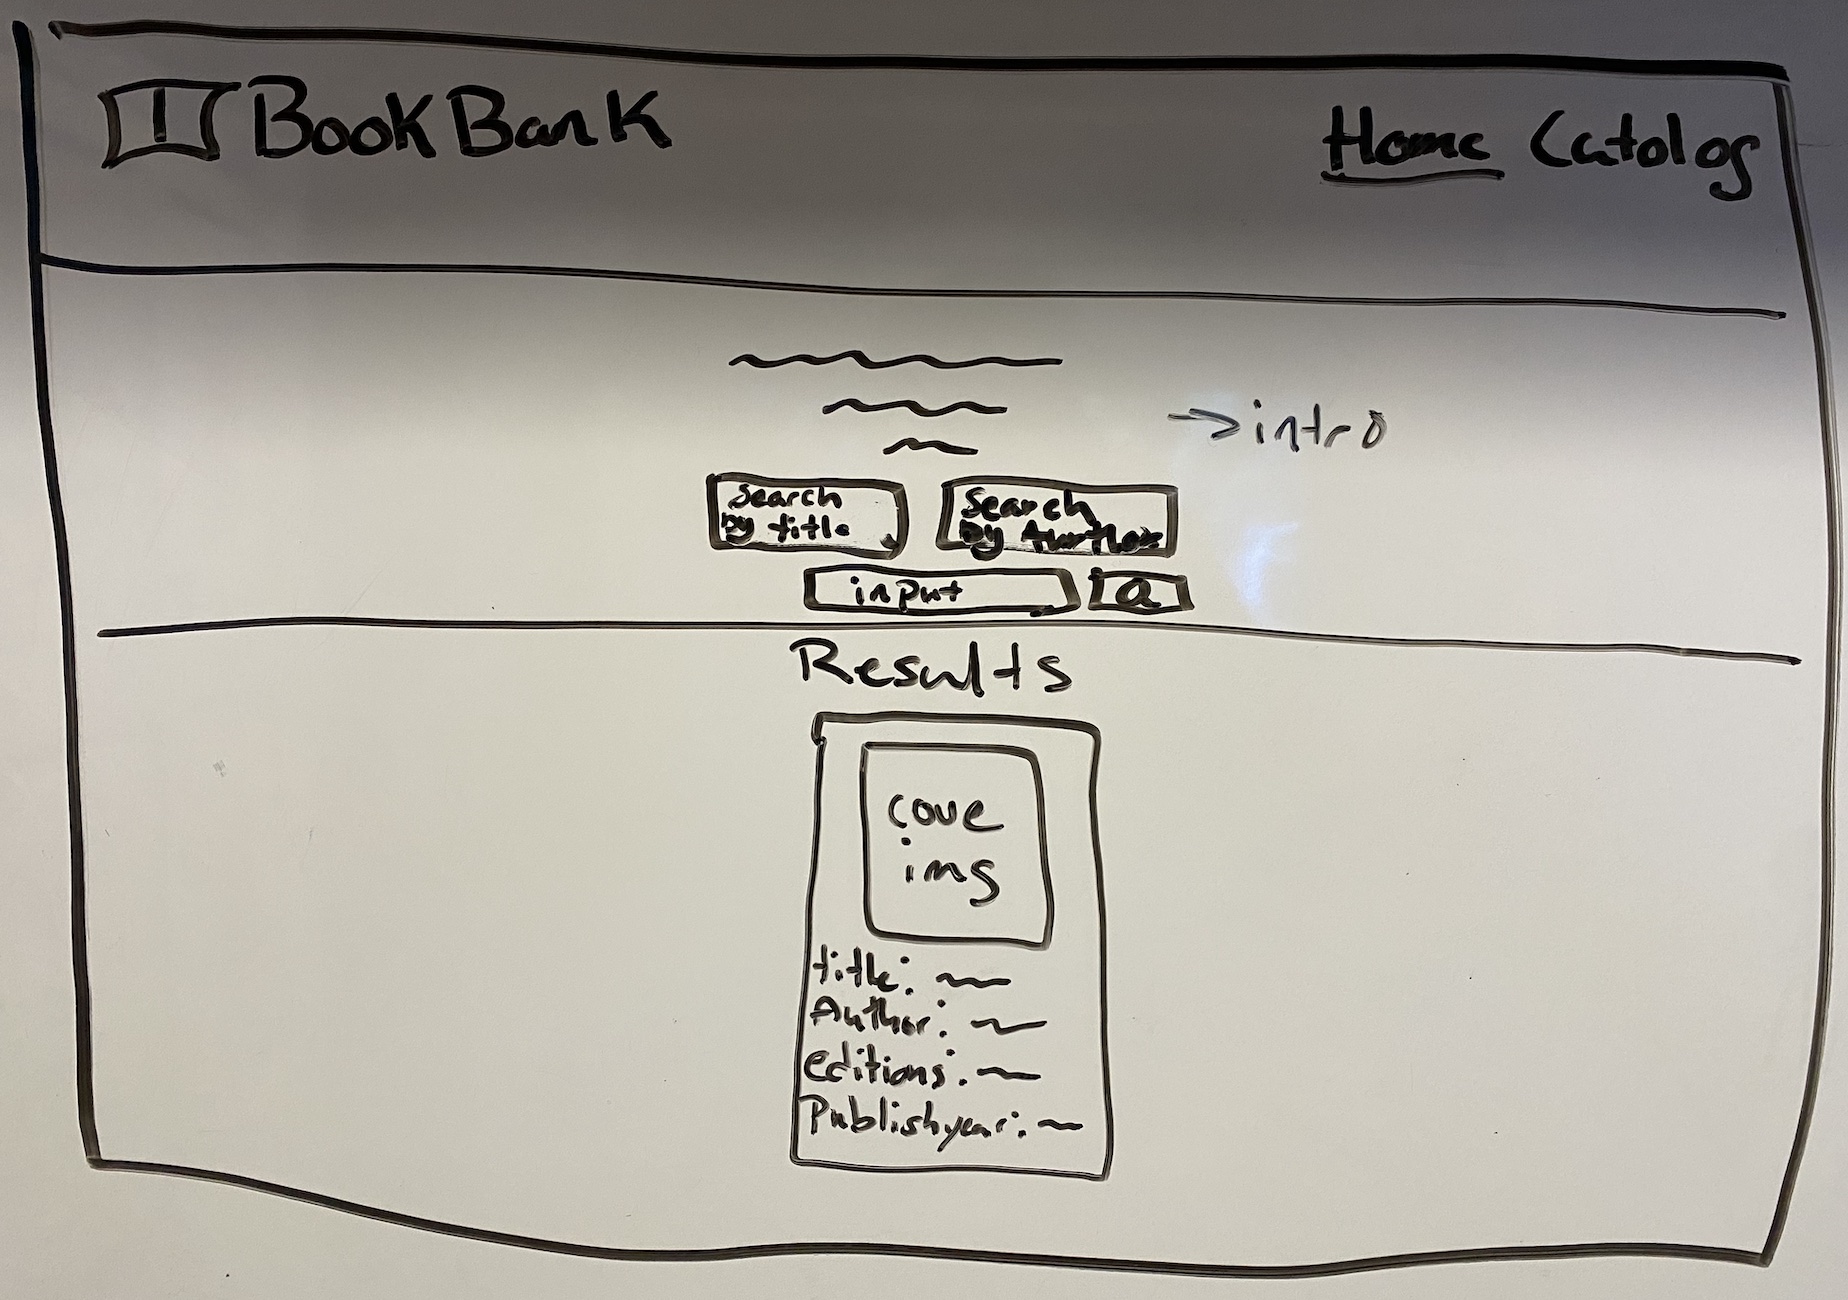 BookBank
Home Catolog
→intro
Search
by title
Search
by Aurthor
input
Results
cove
img
title:
Author:
editions:
Publishyear: